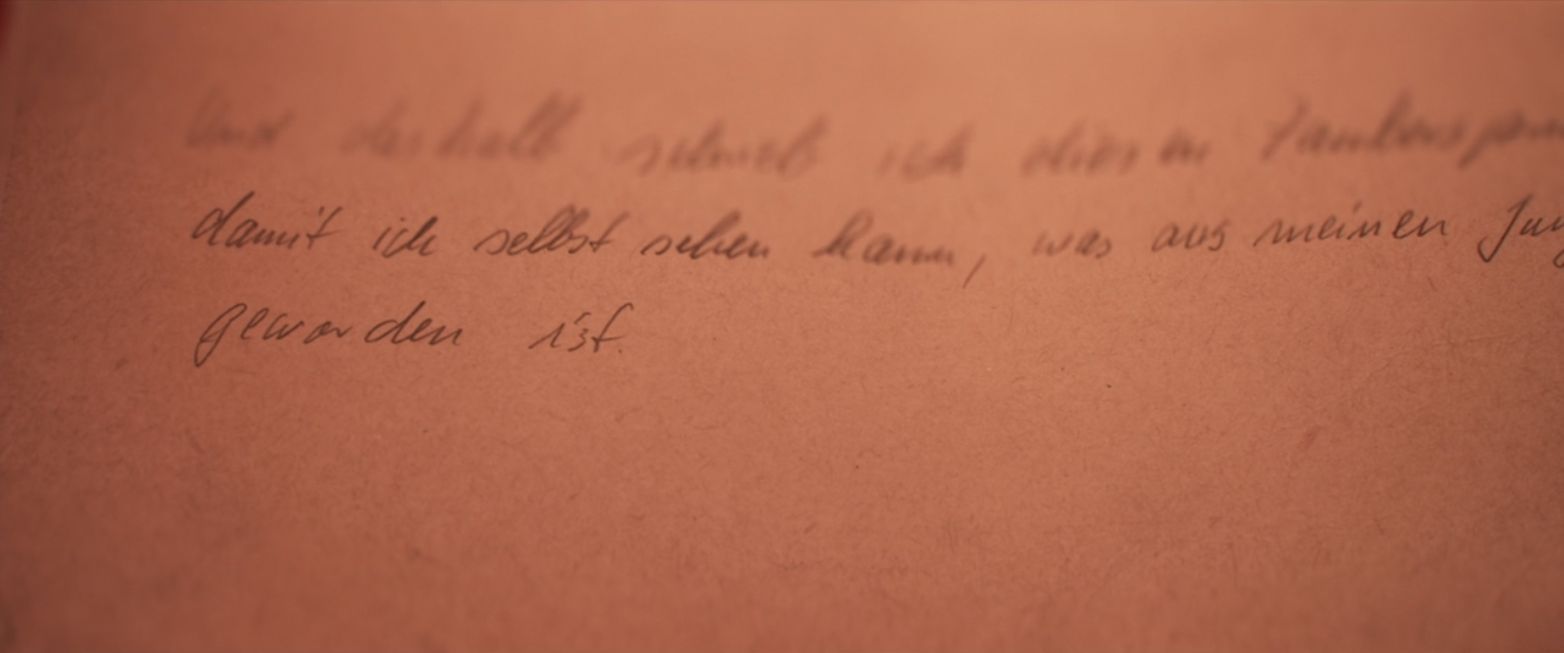 Und deshalb schrieb ich diesen
damit ich selbst sehen kann, was aus meinen
geworden ist.